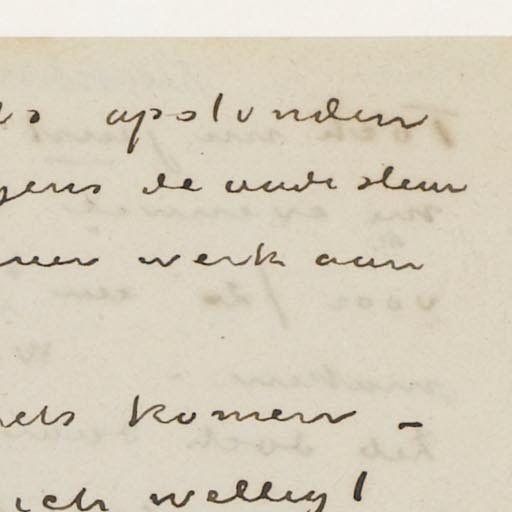 ds opstonden
gens de oude sleur
uw werk aan
iets komen –
ich wellig!